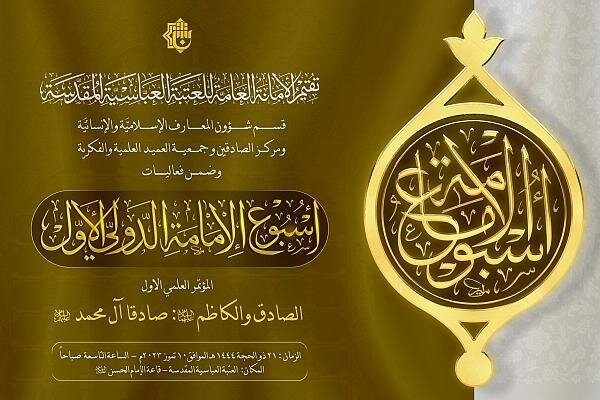 تقيم الأمانة العامة للعتبة العباسية المقدسة
قسم شؤون المعارف الإسلامية والإنسانية
ومركز الصادقين وجمعية العميد العلمية والفكرية
وضمن فعاليات
أسبوع الإمامة الدولي الأول
المؤتمر العلمي الأول
الصادق والكاظم : صادقا آل محمد
الزمان: ٢١ ذو الحجة ١٤٤٤ هـ الموافق ١٠ تموز ٢٠٢٣م - الساعة التاسعة صباحاً
المكان: العتبة العباسية المقدسة - قاعة الإمام الحسن
أسبوع الإمامة